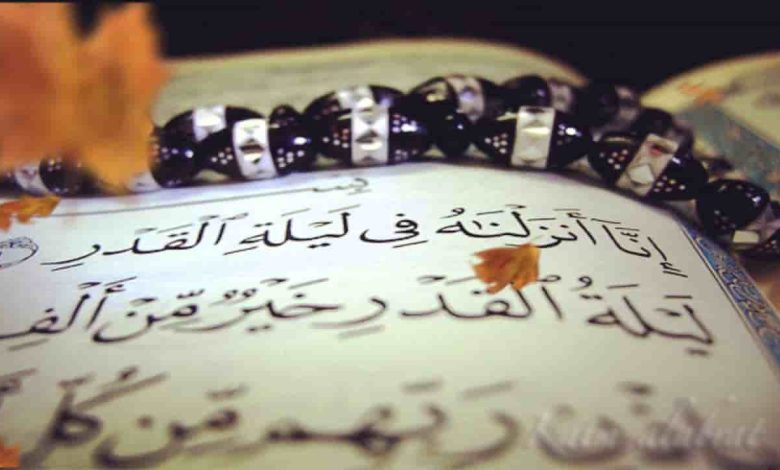 بِسْ
إِنَّآ أَنزَلْنَٰهُ فِى لَيْلَةِ ٱلْقَدْرِ
لَيْلَةُ ٱلْقَدْرِ خَيْرٌ مِّنْ أَلْفِ
ذْنِ رَبِّهِم مِّن كُلِّ